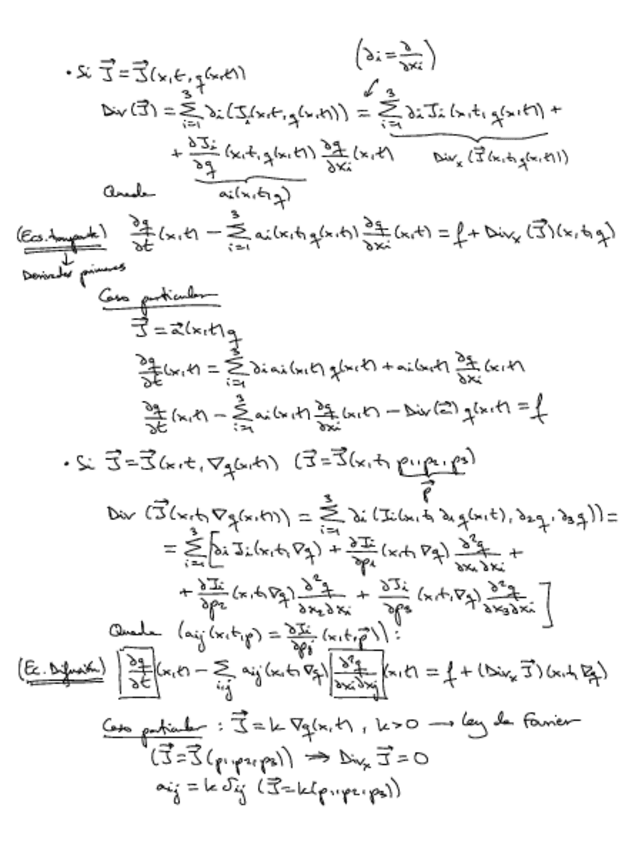 (∂i = ∂/∂xi)
• Si J⃗ = J⃗(x,t,q(x,t))
Div(J⃗) = ∑_{i=1}^{3} ∂i(Ji(x,t,q(x,t))) = ∑_{i=1}^{3} ∂i Ji(x,t,q(x,t)) +
+ ∂Ji/∂q (x,t,q(x,t)) ∂q/∂xi (x,t)
Divx(J⃗(x,t,q(x,t)))
Queda
ai(x,t,q)
(Ecs. transporte) ∂q/∂t (x,t) − ∑_{i=1}^{3} ai(x,t,q(x,t)) ∂q/∂xi (x,t) = f + Divx(J⃗)(x,t,q)
Derivadas primeras
Caso particular
J⃗ = a⃗(x,t)q
∂q/∂t (x,t) = ∑_{i=1}^{3} ∂i ai(x,t) q(x,t) + ai(x,t) ∂q/∂xi (x,t)
∂q/∂t (x,t) − ∑_{i=1}^{3} ai(x,t) ∂q/∂xi (x,t) − Div(a⃗) q(x,t) = f
• Si J⃗ = J⃗(x,t,∇q(x,t)) (J⃗ = J⃗(x,t,p1,p2,p3)
p⃗
Div(J⃗(x,t,∇q(x,t))) = ∑_{i=1}^{3} ∂i(Ji(x,t,∂1q(x,t),∂2q,∂3q)) =
= ∑_{i=1}^{3} [∂i Ji(x,t,∇q) + ∂Ji/∂p1 (x,t,∇q) ∂²q/∂x1∂xi +
+ ∂Ji/∂p2 (x,t,∇q) ∂²q/∂x2∂xi + ∂Ji/∂p3 (x,t,∇q) ∂²q/∂x3∂xi]
Queda (aij(x,t,p) = ∂Ji/∂pj (x,t,p⃗)):
(Ec. Difusión) ∂q/∂t (x,t) − ∑_{i,j} aij(x,t,∇q) ∂²q/∂xi∂xj (x,t) = f + (Divx J⃗)(x,t,∇q)
Caso particular: J⃗ = k ∇q(x,t), k>0 → Ley de Fourier
(J⃗ = J⃗(p1,p2,p3)) ⇒ Divx J⃗ = 0
aij = k δij (J⃗ = k(p1,p2,p3))